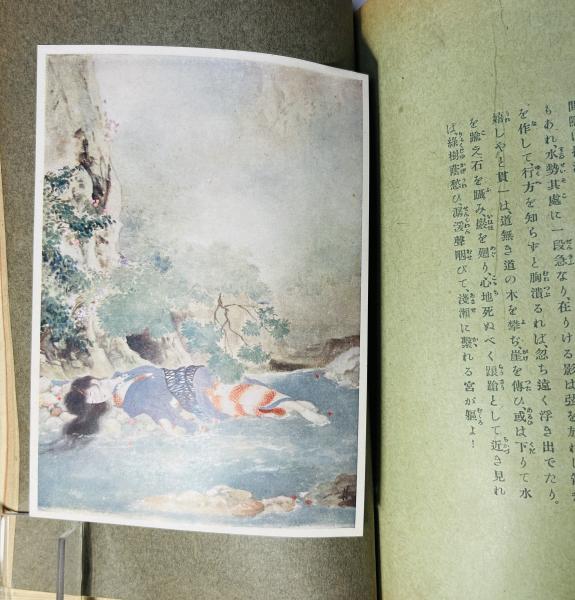 もあれ、水勢其處に一段急なり、在りける影は弦を放れし
を作して、行方を知らずと胸潰るれば、忽ち遠く浮き出でたり。
嬉しやと貫一は、道無き道の木を攀ぢ、崖を傳ひ、或は下りて水
を踰え、石を躡み、巖を廻り、心地死ぬべく踉蹌として近き見れ
ば、綠樹蔭愁ひ、潺湲聲咽びて、淺瀬に繋れる宮が軀よ！